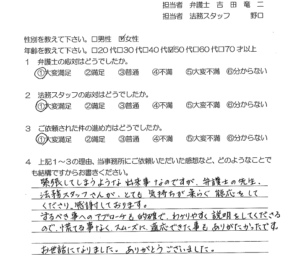 担当者 弁護士 吉田 竜二
担当者 法務スタッフ 野口
性別を教えて下さい。□男性 ☑女性
年齢を教えて下さい。□20代□30代□40代☑50代□60代□70才以上
1 弁護士の応対はどうでしたか。
①大変満足 ②満足 ③普通 ④不満 ⑤大変不満 ⑥分からない
2 法務スタッフの応対はどうでしたか。
①大変満足 ②満足 ③普通 ④不満 ⑤大変不満 ⑥分からない
3 ご依頼された件の進め方はどうでしたか。
①大変満足 ②満足 ③普通 ④不満 ⑤大変不満 ⑥分からない
4 上記1~3の理由、当事務所にご依頼いただいた感想など、どのようなことで
も結構ですからお書きください。
緊張してしまうような出来事なのですが、弁護士の先生、
法務スタッフさんが、とても気持ちが楽らぐ対応をして
くださり、感謝しております。
するべき事へのアプローチも的確で、わかりやすく説明をしてくださる
ので、慌てる事なく、スムーズに適応できた事もありがたかったです。
お世話になりました。ありがとうございました。